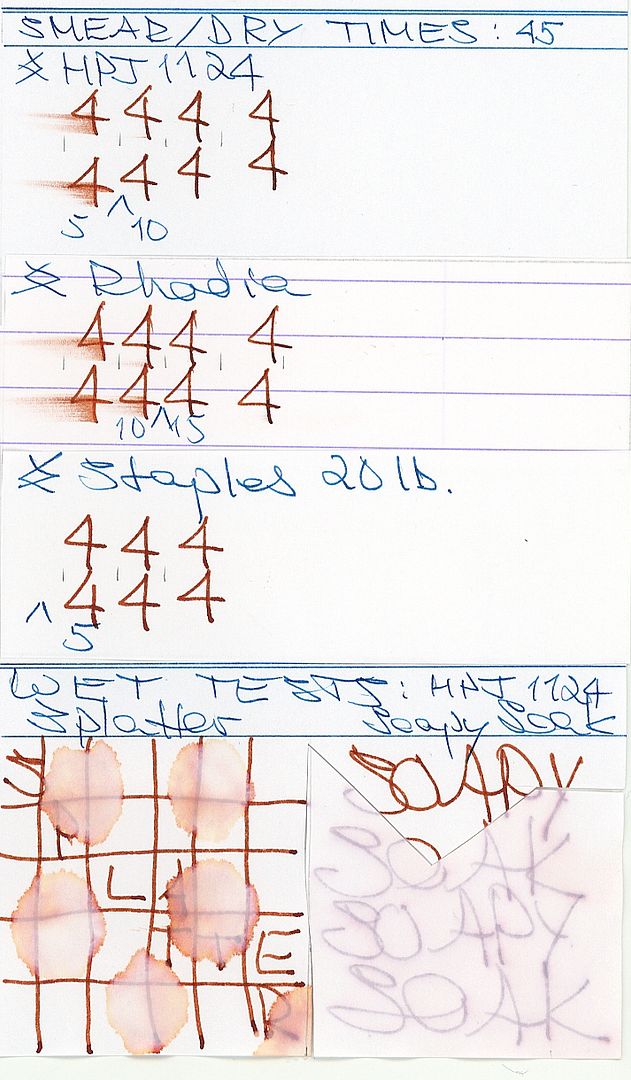 SMEAR/DRY TIMES: 45
* HPJ1124
4 4 4 4
4 4 4 4
5 ^ 10
* Rhodia
4 4 4 4
4 4 4 4
10 ^ 15
* Staples 20 lb.
4 4 4
4 4 4
^ 5
WET TESTS: HPJ 1124
Splatter Soapy Soak
SPLATTER
SOAPY
SOAK
SOAPY
SOAK